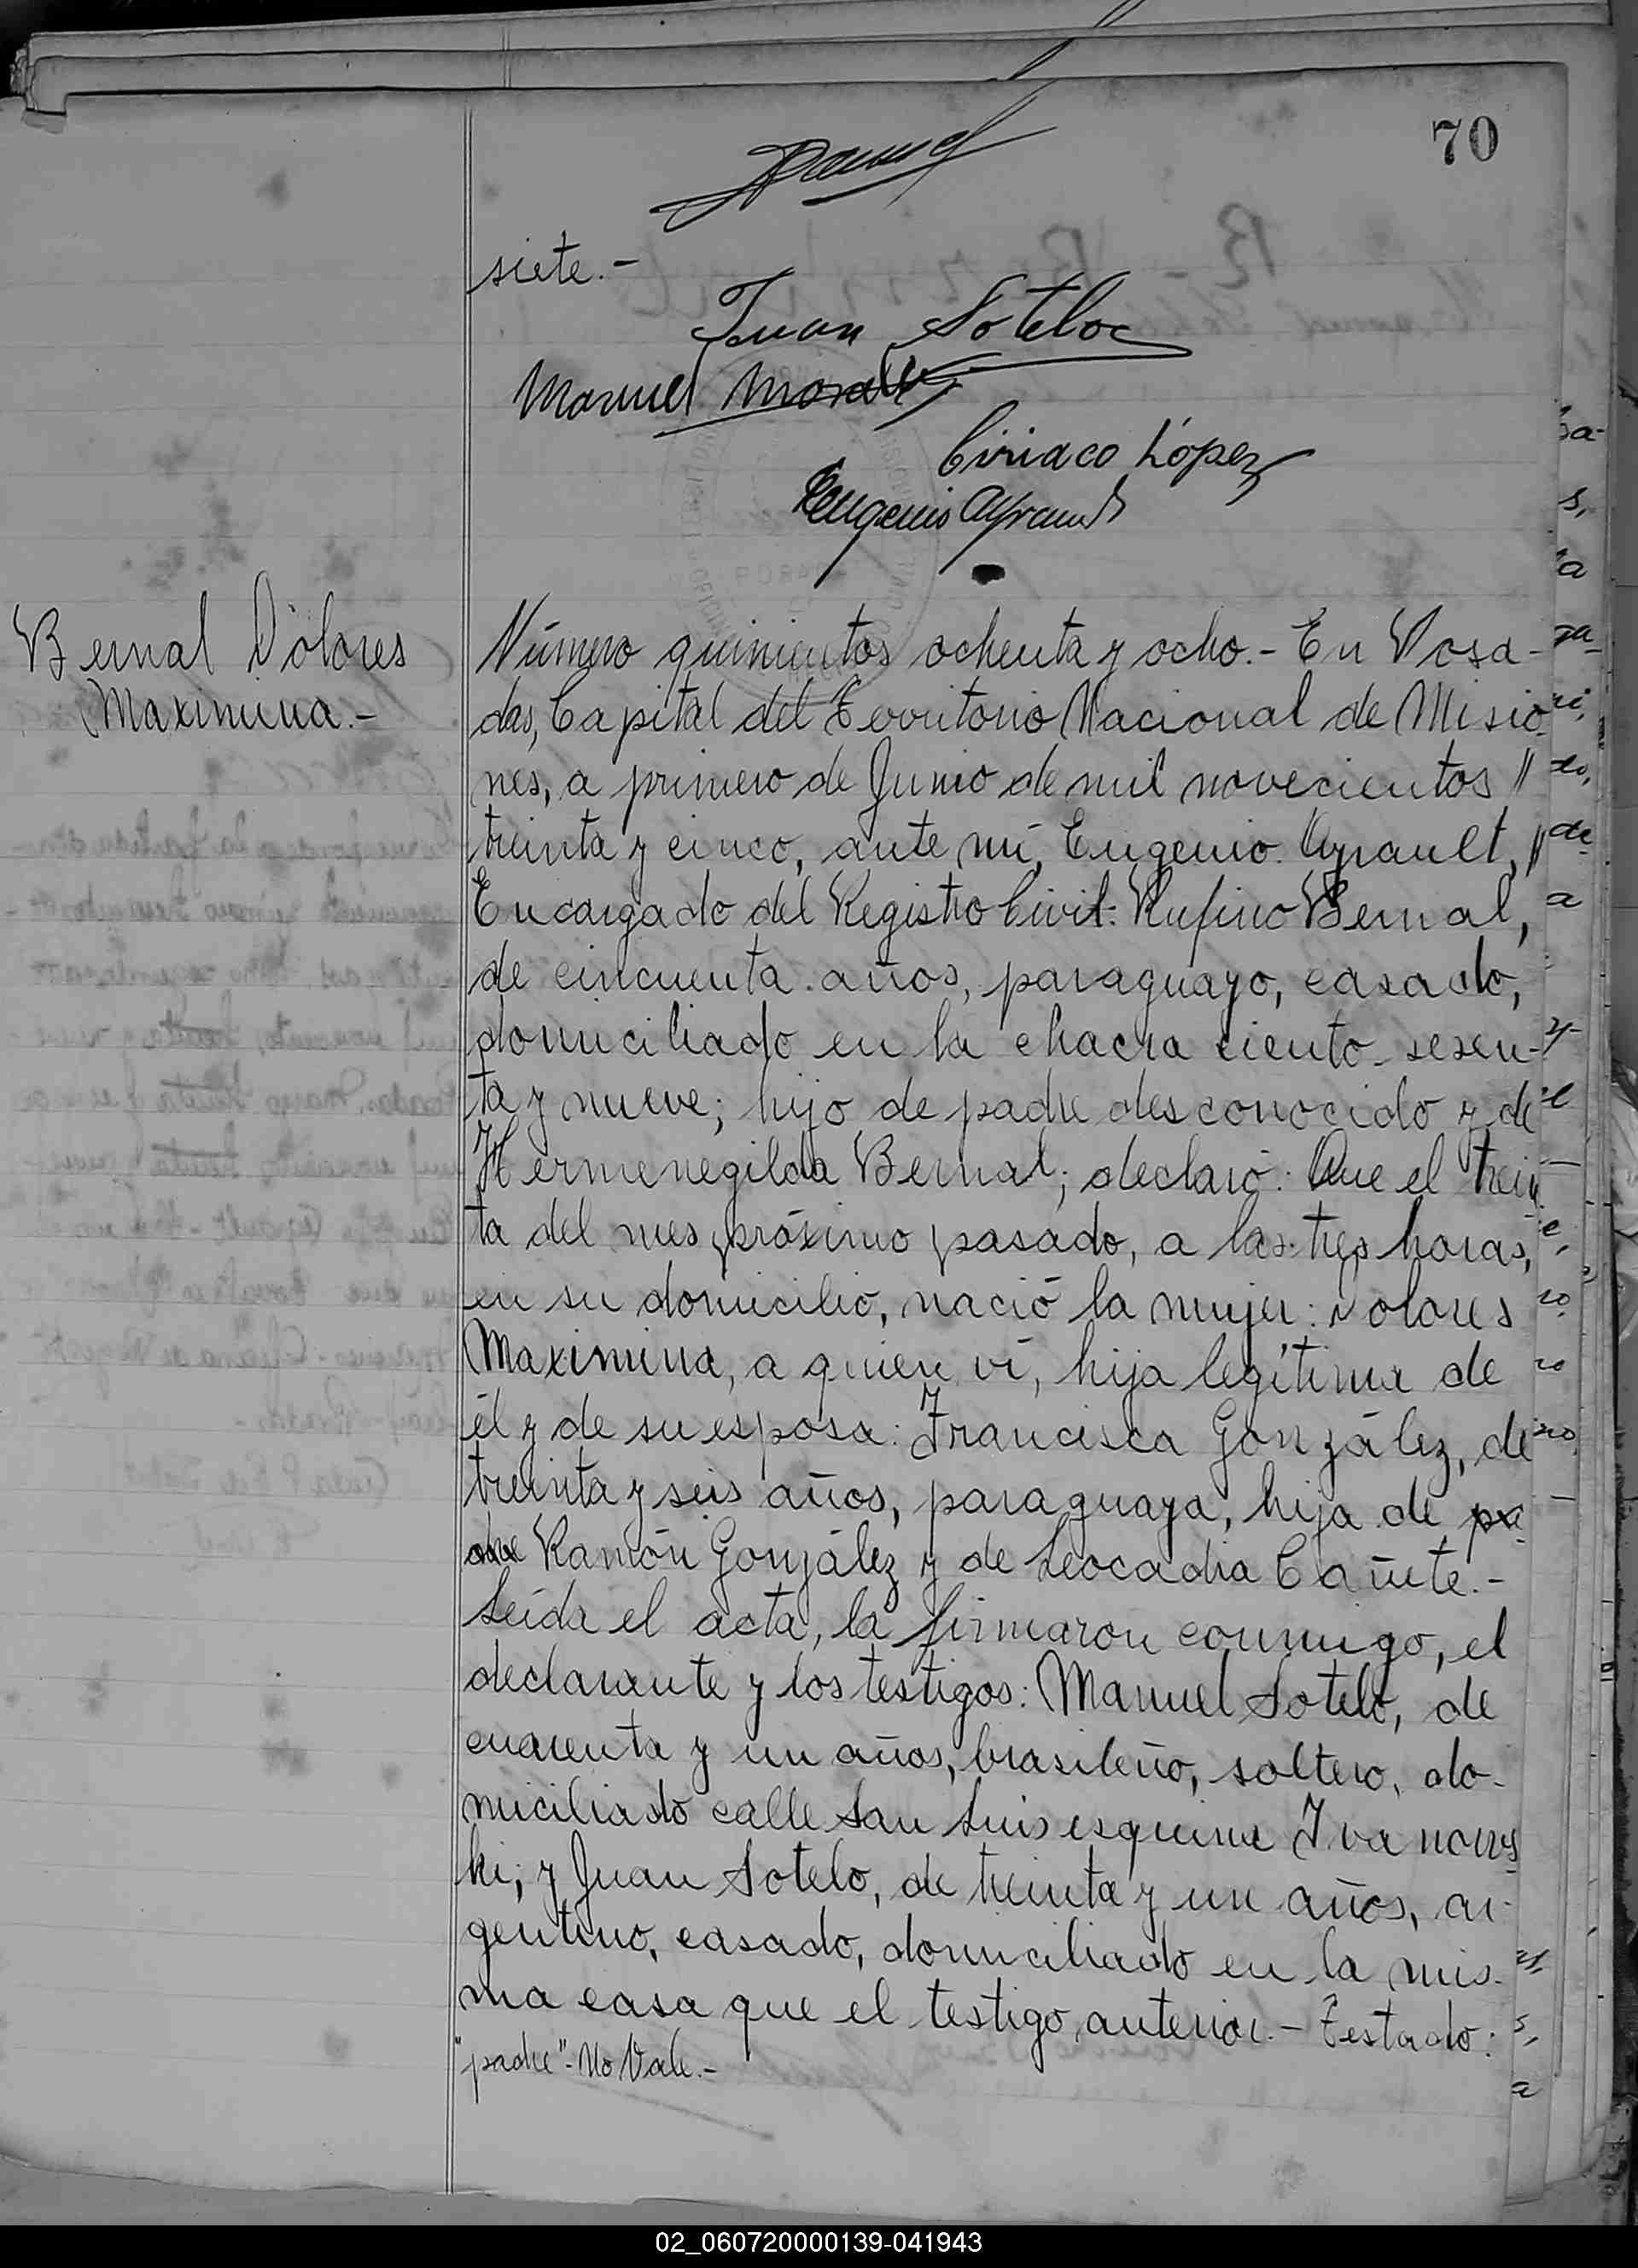 70
siete.-
Juan Sotelo
Manuel Morales
Ciriaco López
Eugenio Ayrault
Bernal Dolores
Maximina.-
Número quinientos ochenta y ocho.- En Posa-
das, Capital del Territorio Nacional de Misio-
nes, a primero de Junio de mil novecientos //
treinta y cinco, ante mí, Eugenio Ayrault, //
Encargado del Registro Civil: Rufino Bernal,
de cincuenta años, paraguayo, casado,
domiciliado en la chacra ciento sesen-
ta y nueve; hijo de padre desconocido y de
Hermenegilda Bernal; declaró: Que el trein
ta del mes próximo pasado, a las tres horas,
en su domicilio, nació la mujer: Dolores
Maximina, a quien ví, hija legítima de
él y de su esposa: Francisca González, de
treinta y seis años, paraguaya, hija de pa
dre Ramón González y de Leocadia Cañete.-
Leída el acta, la firmaron conmigo, el
declarante y los testigos: Manuel Sotelo, de
cuarenta y un años, brasileño, soltero, do-
miciliado calle San Luis esquina Ivanows
ki; y Juan Sotelo, de treinta y un años, ar-
gentino, casado, domiciliado en la mis-
ma casa que el testigo anterior.- Testado:
"padre"- No Vale.-
02_060720000139-041943